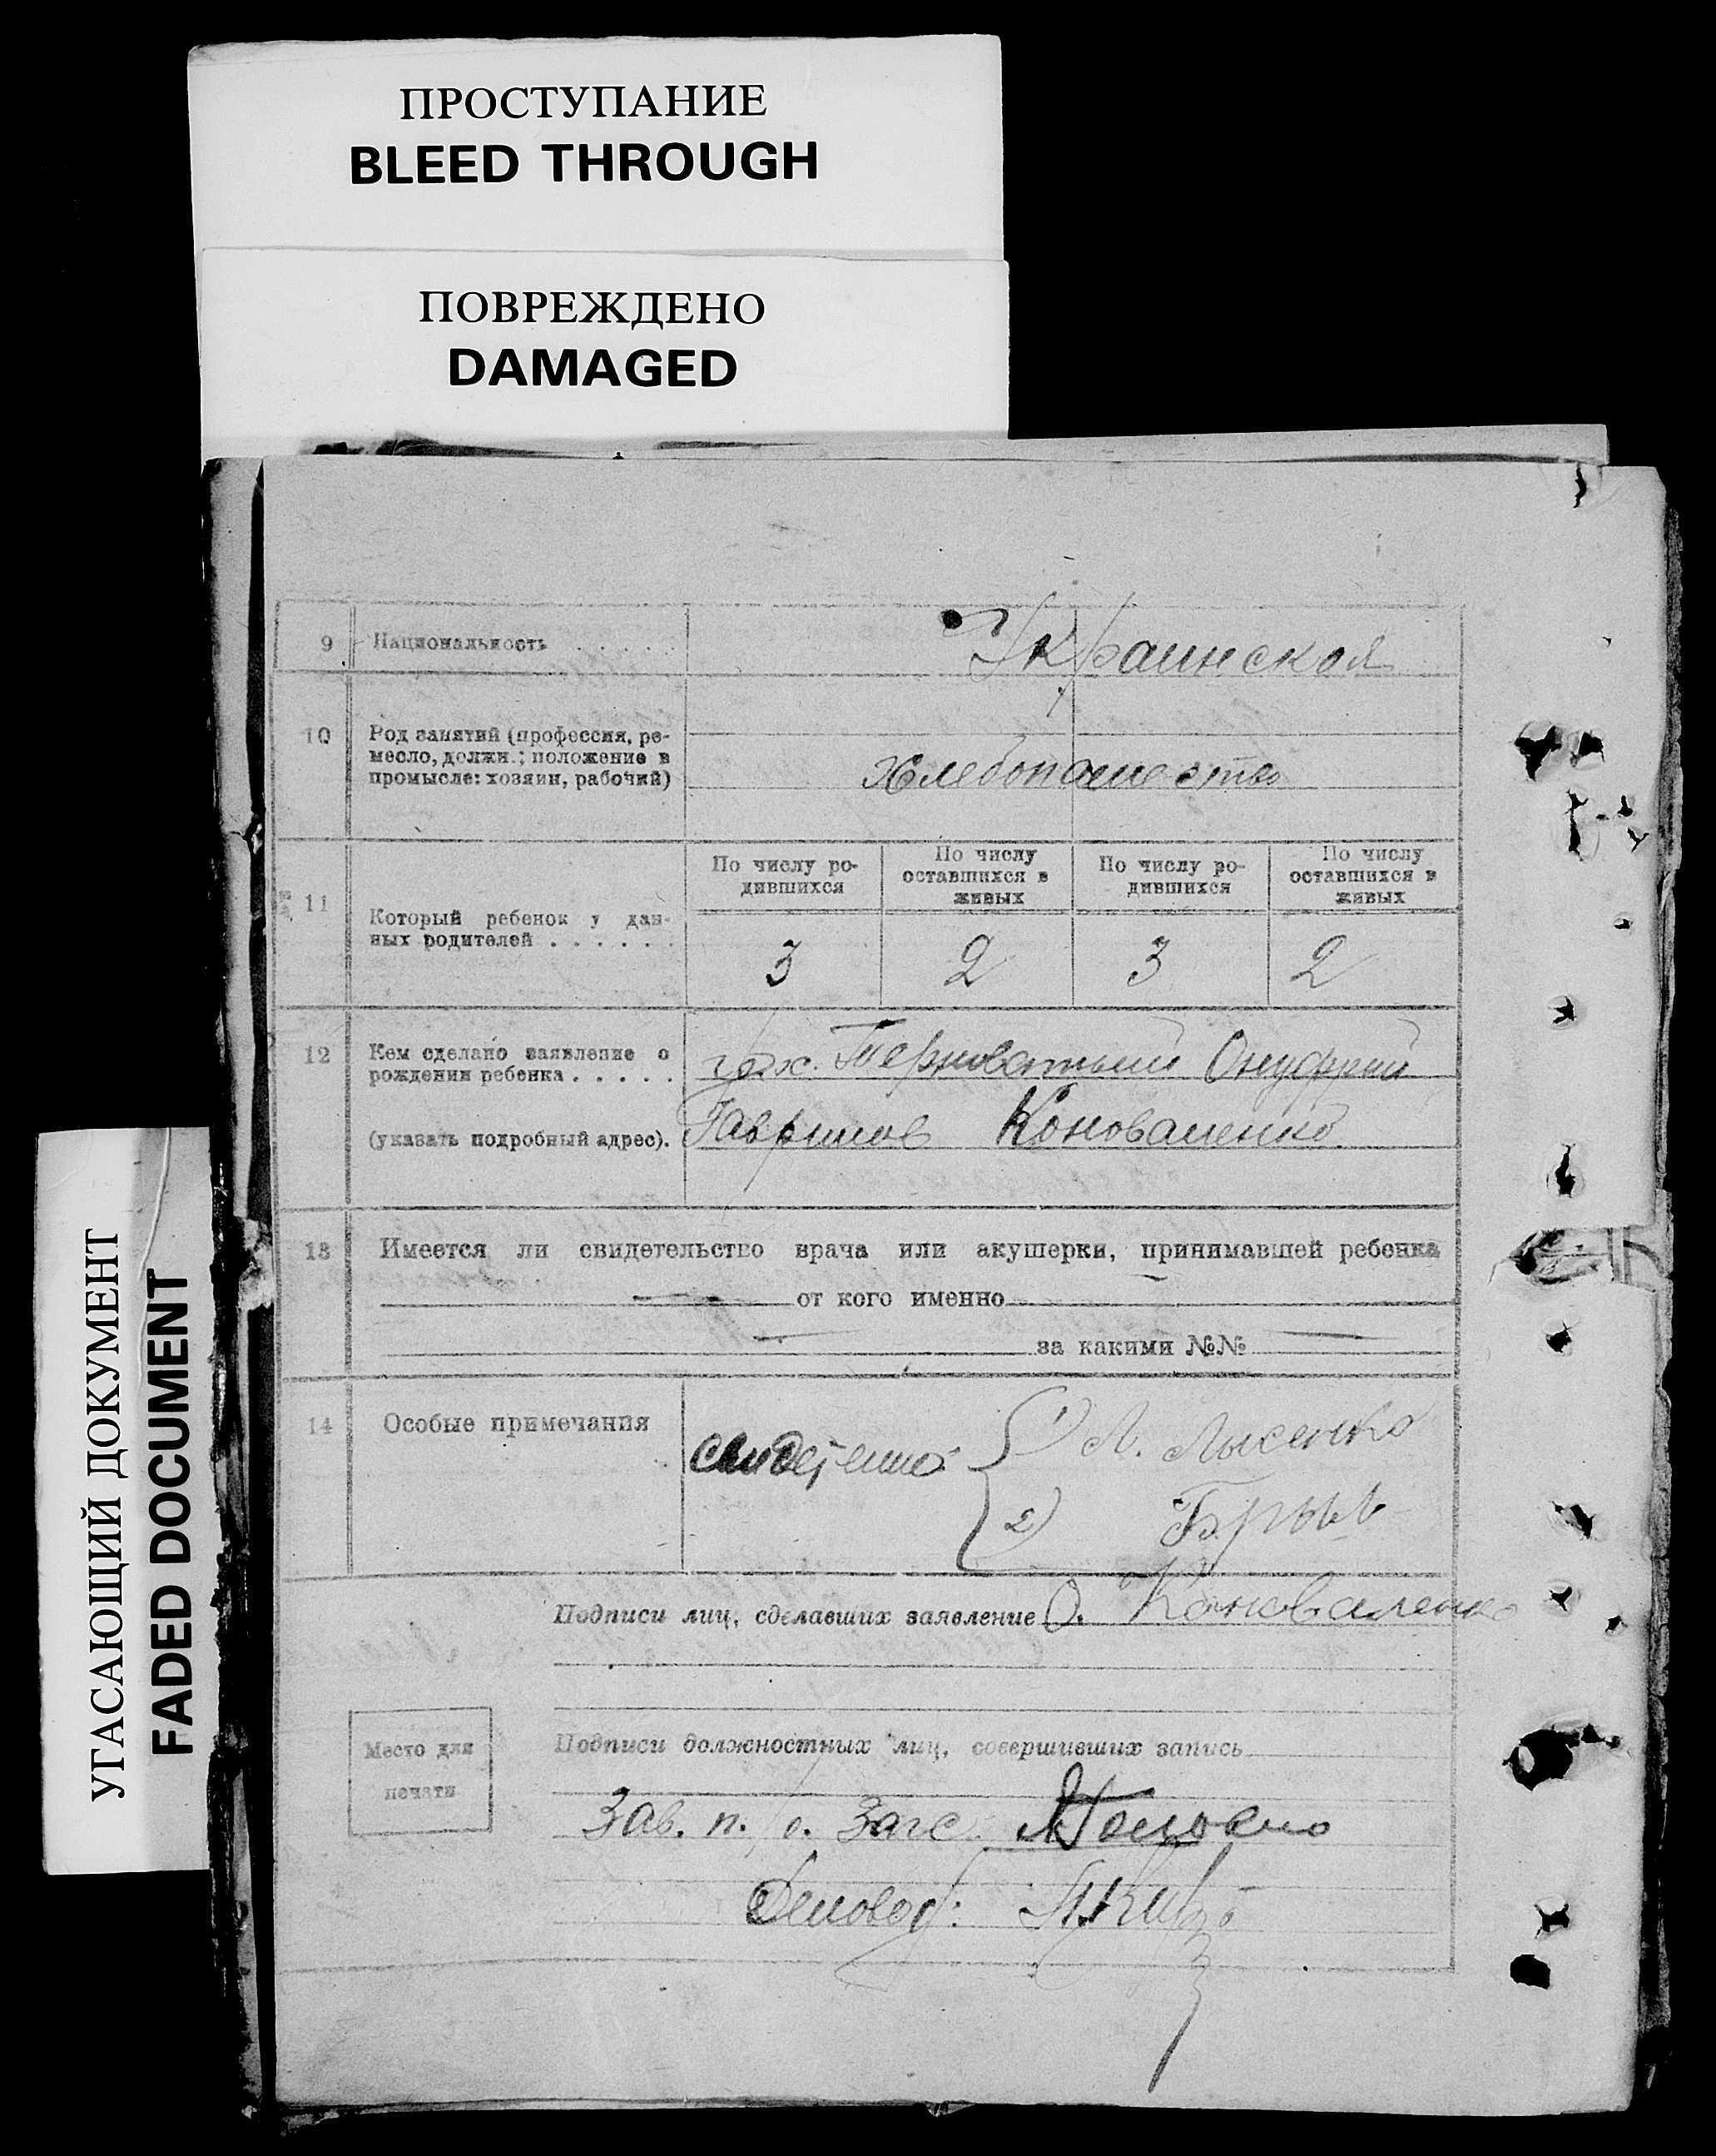 ПРОСТУПАНИЕ
BLEED THROUGH
ПОВРЕЖДЕНО
DAMAGED
УГАСАЮЩИЙ ДОКУМЕНТ
FADED DOCUMENT
9 Национальность . . . . . Украинская
10 Род занятий (профессия, ре-
месло, должн.; положение в
промысле: хозяин, рабочий)
хлебопашество
11 Который ребенок у дан-
ных родителей . . . . . .
По числу ро-
дившихся
По числу
оставшихся в
живых
По числу ро-
дившихся
По числу
оставшихся в
живых
3 2 3 2
12 Кем сделано заявление о
рождении ребенка . . . . .
(указать подробный адрес).
гр. х. Терноватый Онуфрий
Гаврилов Коноваленко
13 Имеется ли свидетельство врача или акушерки, принимавшей ребенка
— от кого именно
— за какими №№ —
14 Особые примечания
свидетели: 1) Л. Лысенко
2)
Подписи лиц, сделавших заявление О. Коноваленко
Место для
печати
Подписи должностных лиц, совершивших запись
Зав. п. о. Загс
Деловод: